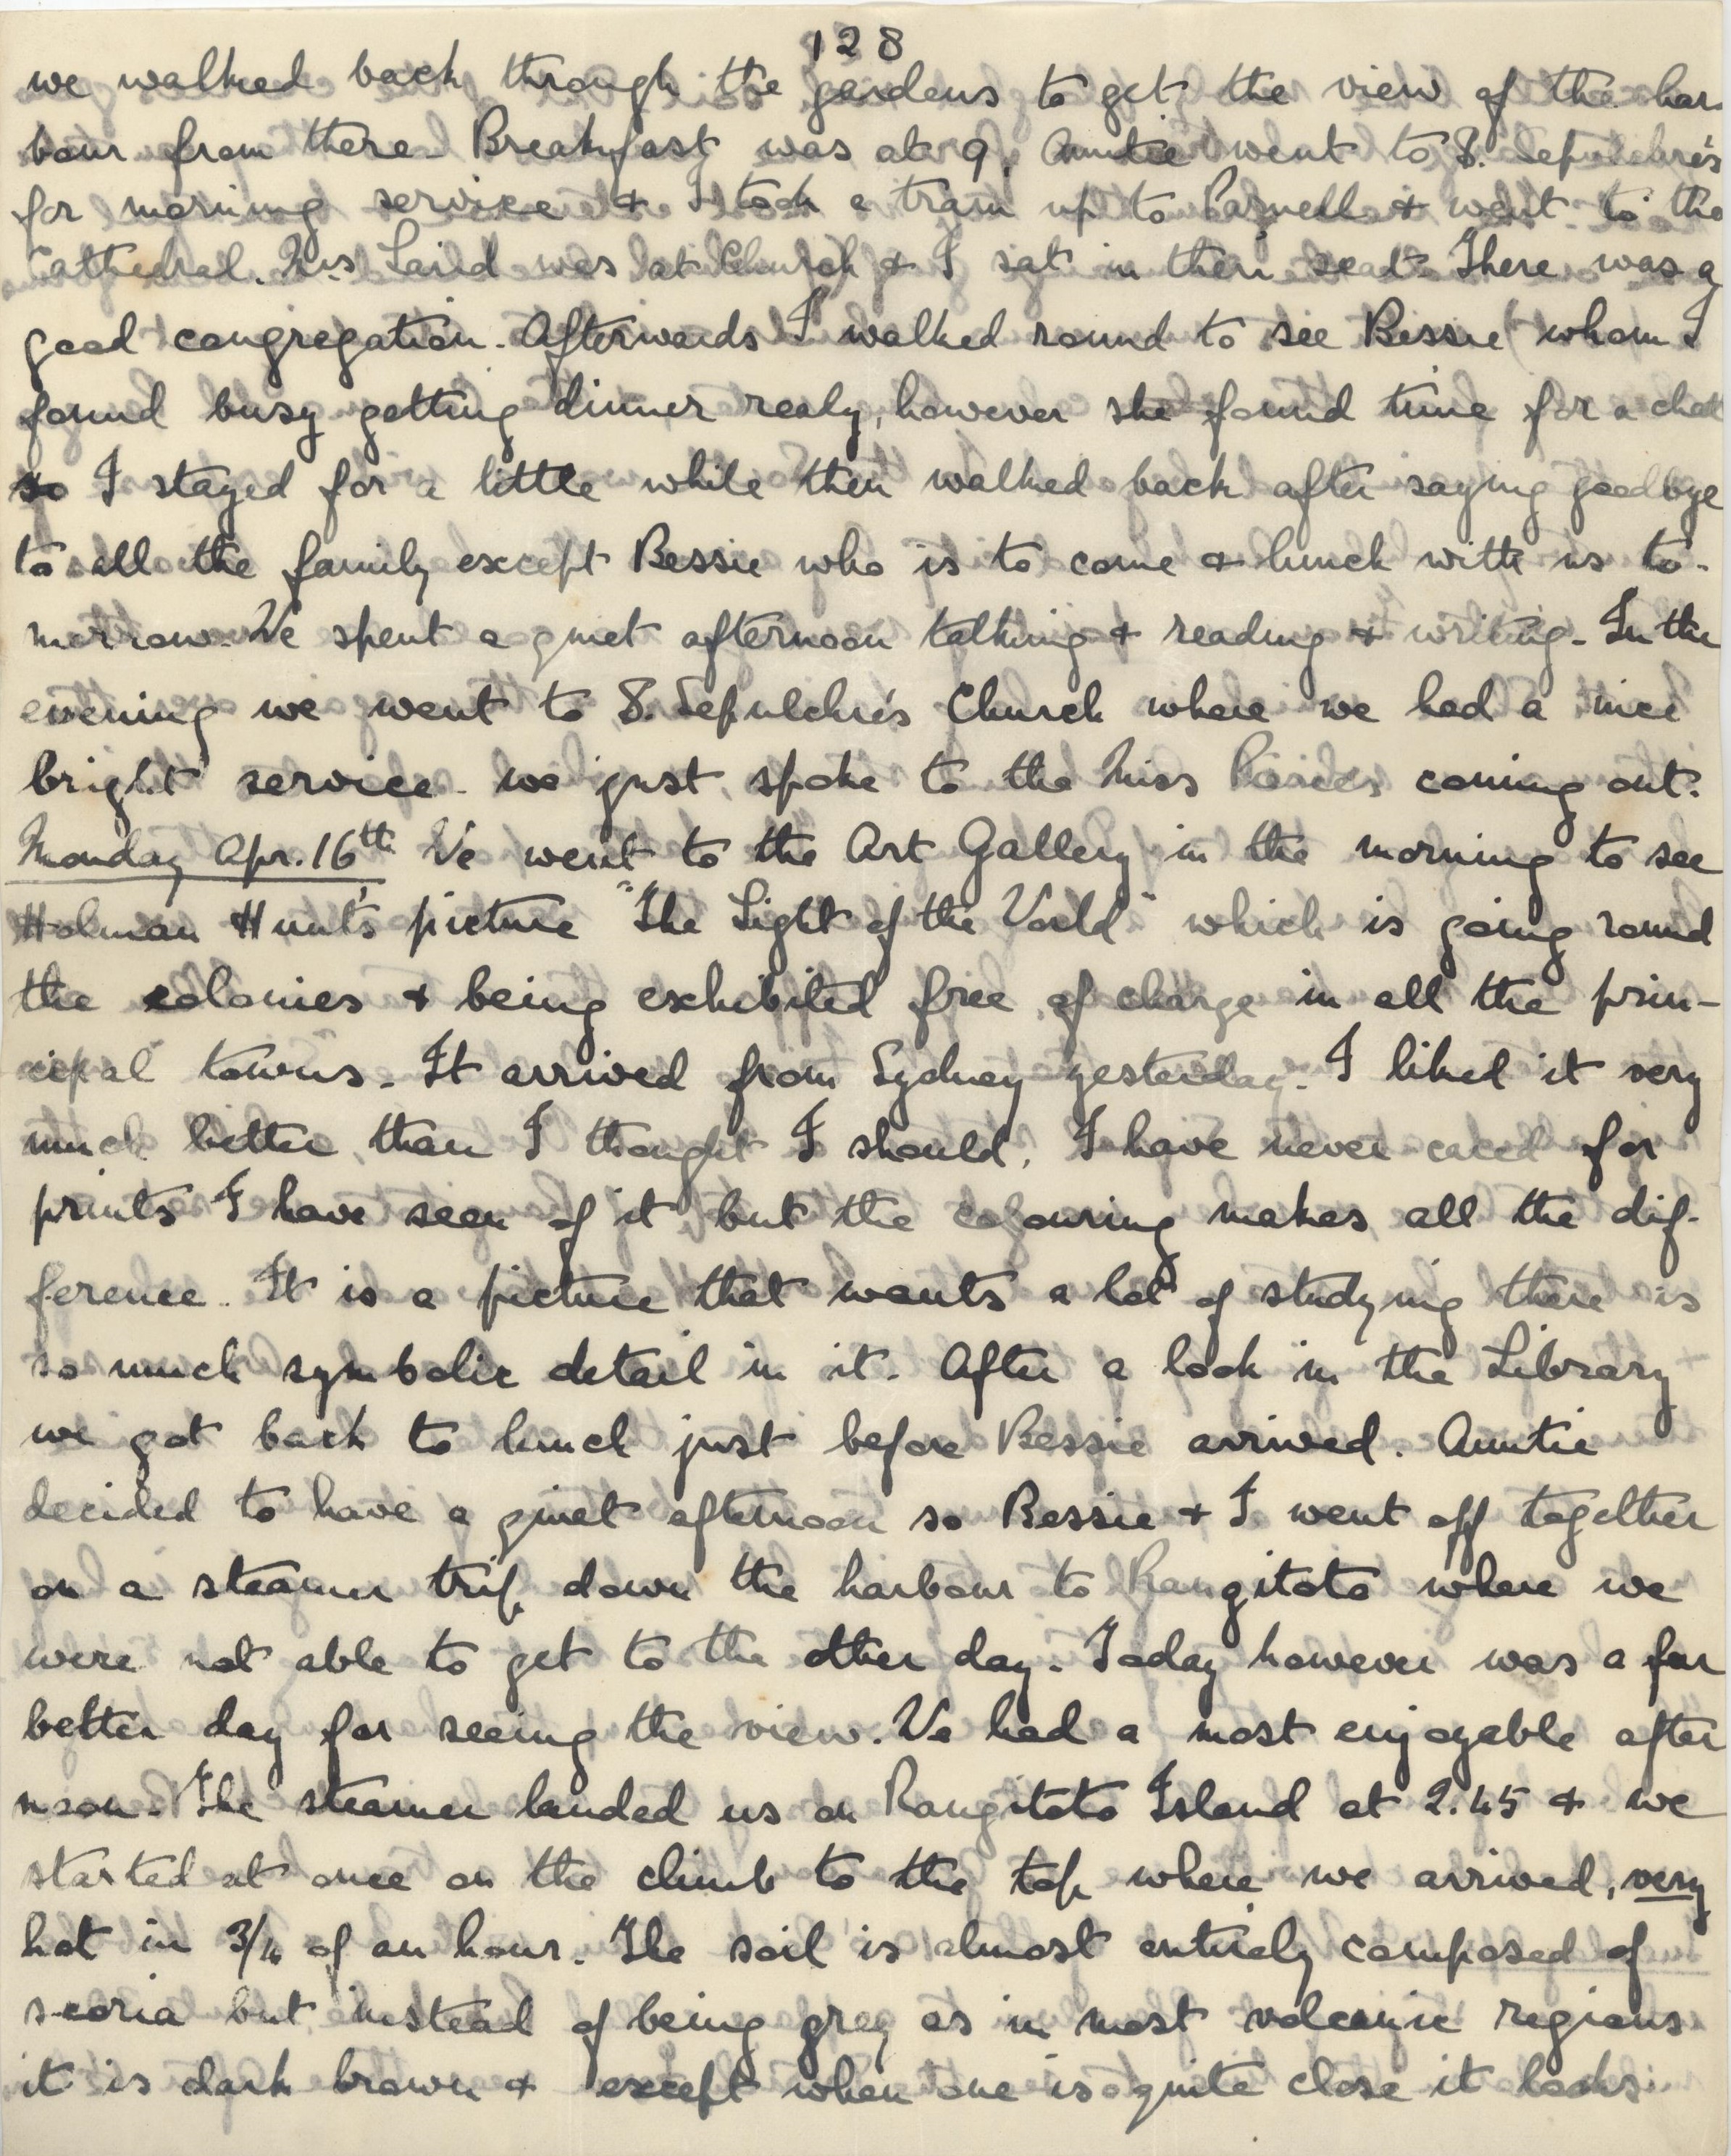 128
we walked back through the gardens to get the view of the har
bour from there. Breakfast was at 9. Auntie went to S. Sepulchre's
for morning service & I took a tram up to Parnell & went to the
Cathedral. Mrs Laird was at Church & I sat in their seat. There was a
good congregation. Afterwards I walked round to see Bessie whom I
found busy getting dinner realy, however she found time for a chat
so I stayed for a little while then walked back after saying goodbye
to all the family except Bessie who is to come & lunch with us to-
morrow. We spent a quiet afternoon talking & reading & writing. In the
evening we went to S. Sepulchre's Church where we had a nice
bright service. we just spoke to the Miss coming out.
Monday Apr. 16th We went to the Art Gallery in the morning to see
Holman Hunt's picture "The Light of the World" which is going round
the colonies & being exhibited free of charge in all the prin-
cipal towns. It arrived from Sydney yesterday. I liked it very
much better than I thought I should. I have never cared for
prints I have seen of it but the colouring makes all the dif-
ference. It is a picture that wants a lot of studying there is
so much symbolic detail in it. After a look in the Library
we got back to lunch just before Bessie arrived. Auntie
decided to have a quiet afternoon so Bessie & I went off together
on a steamer trip down the harbour to Rangitoto where we
were not able to get to the other day. Today however was a far
better day for seeing the view. We had a most enjoyable after
noon. The steamer landed us on Rangitoto Island at 2.45 & we
started at once on the climb to the top where we arrived, very
hot in 3/4 of an hour. The soil is almost entirely composed of
scoria but instead of being grey as in most volcanic regions
it is dark brown & except when one is quite close it looks